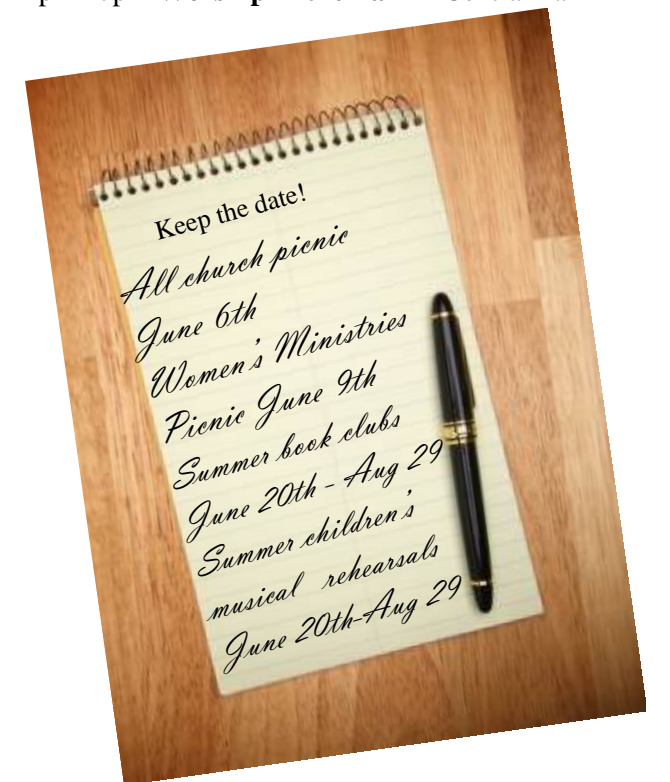 Keep the date!
All church picnic
June 6th
Women's Ministries
Picnic June 9th
Summer book clubs
June 20th - Aug 29
Summer children's
musical rehearsals
June 20th-Aug 29